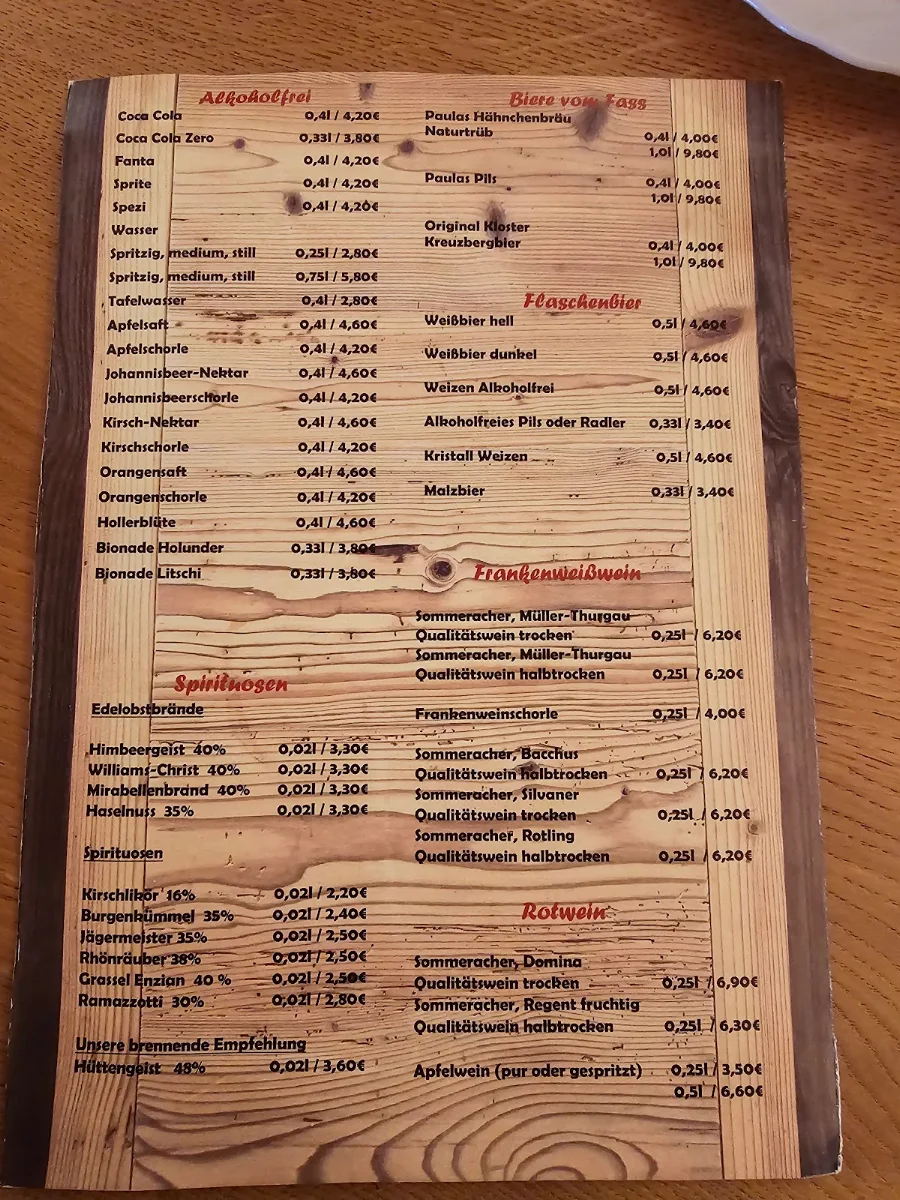 Alkoholfrei
Coca Cola 0,4l / 4,20€
Coca Cola Zero 0,33l / 3,80€
Fanta 0,4l / 4,20€
Sprite 0,4l / 4,20€
Spezi 0,4l / 4,20€
Wasser
Spritzig, medium, still 0,25l / 2,80€
Spritzig, medium, still 0,75l / 5,80€
Tafelwasser 0,4l / 2,80€
Apfelsaft 0,4l / 4,60€
Apfelschorle 0,4l / 4,20€
Johannisbeer-Nektar 0,4l / 4,60€
Johannisbeerschorle 0,4l / 4,20€
Kirsch-Nektar 0,4l / 4,60€
Kirschschorle 0,4l / 4,20€
Orangensaft 0,4l / 4,60€
Orangenschorle 0,4l / 4,20€
Hollerblüte 0,4l / 4,60€
Bionade Holunder 0,33l / 3,80€
Bionade Litschi 0,33l / 3,80€
Spirituosen
Edelobstbrände
Himbeergeist 40% 0,02l / 3,30€
Williams-Christ 40% 0,02l / 3,30€
Mirabellenbrand 40% 0,02l / 3,30€
Haselnuss 35% 0,02l / 3,30€
Spirituosen
Kirschlikör 16% 0,02l / 2,20€
Burgenkümmel 35% 0,02l / 2,40€
Jägermeister 35% 0,02l / 2,50€
Rhönräuber 38% 0,02l / 2,50€
Grassel Enzian 40 % 0,02l / 2,50€
Ramazzotti 30% 0,02l / 2,80€
Unsere brennende Empfehlung
Hüttengeist 48% 0,02l / 3,60€
Biere vom Fass
Paulas Hähnchenbräu
Naturtrüb 0,4l / 4,00€
1,0l / 9,80€
Paulas Pils 0,4l / 4,00€
1,0l / 9,80€
Original Kloster
Kreuzbergbier 0,4l / 4,00€
1,0l / 9,80€
Flaschenbier
Weißbier hell 0,5l / 4,60€
Weißbier dunkel 0,5l / 4,60€
Weizen Alkoholfrei 0,5l / 4,60€
Alkoholfreies Pils oder Radler 0,33l / 3,40€
Kristall Weizen 0,5l / 4,60€
Malzbier 0,33l / 3,40€
Frankenweißwein
Sommeracher, Müller-Thurgau
Qualitätswein trocken 0,25l / 6,20€
Sommeracher, Müller-Thurgau
Qualitätswein halbtrocken 0,25l / 6,20€
Frankenweinschorle 0,25l / 4,00€
Sommeracher, Bacchus
Qualitätswein halbtrocken 0,25l / 6,20€
Sommeracher, Silvaner
Qualitätswein trocken 0,25l / 6,20€
Sommeracher, Rotling
Qualitätswein halbtrocken 0,25l / 6,20€
Rotwein
Sommeracher, Domina
Qualitätswein trocken 0,25l / 6,90€
Sommeracher, Regent fruchtig
Qualitätswein halbtrocken 0,25l / 6,30€
Apfelwein (pur oder gespritzt) 0,25l / 3,50€
0,5l / 6,60€